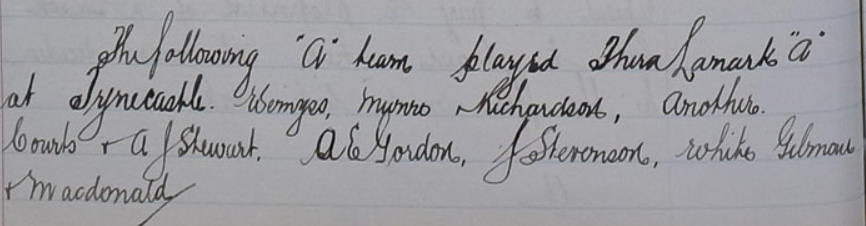 The following "A" team played Third Lanark "A"
at Tynecastle. Wemyss, Munro + Richardson, Another.
Courts + A J Stewart. A E Gordon, J Stevenson, White Gilmour
+ Macdonald